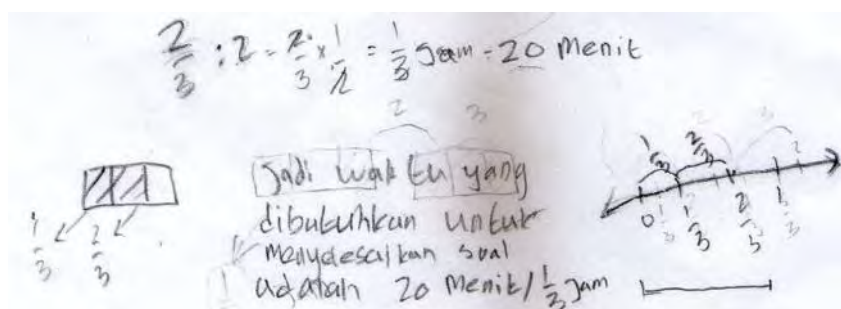 2/3 : 2 = 2/3 x 1/2 = 1/3 jam = 20 Menit
2 3
Jadi waktu yang
dibutuhkan untuk
menyelesaikan soal
adalah 20 Menit / 1/3 jam
1/3 2/3
1/3 2/3
0 1/3 2/3 1